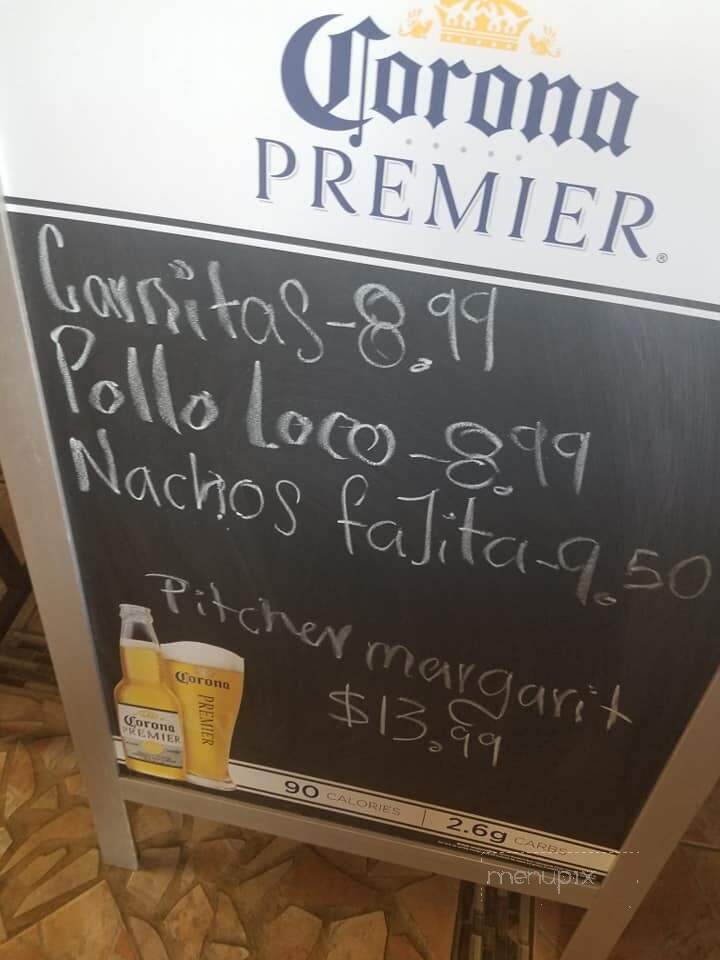 Corona
PREMIER®
Carnitas-8.99
Pollo Loco-8.99
Nachos faJita-9.50
Pitcher margarit
$13.99
Corona
PREMIER
Corona
PREMIER
90 CALORIES | 2.6g CARBS
menupix